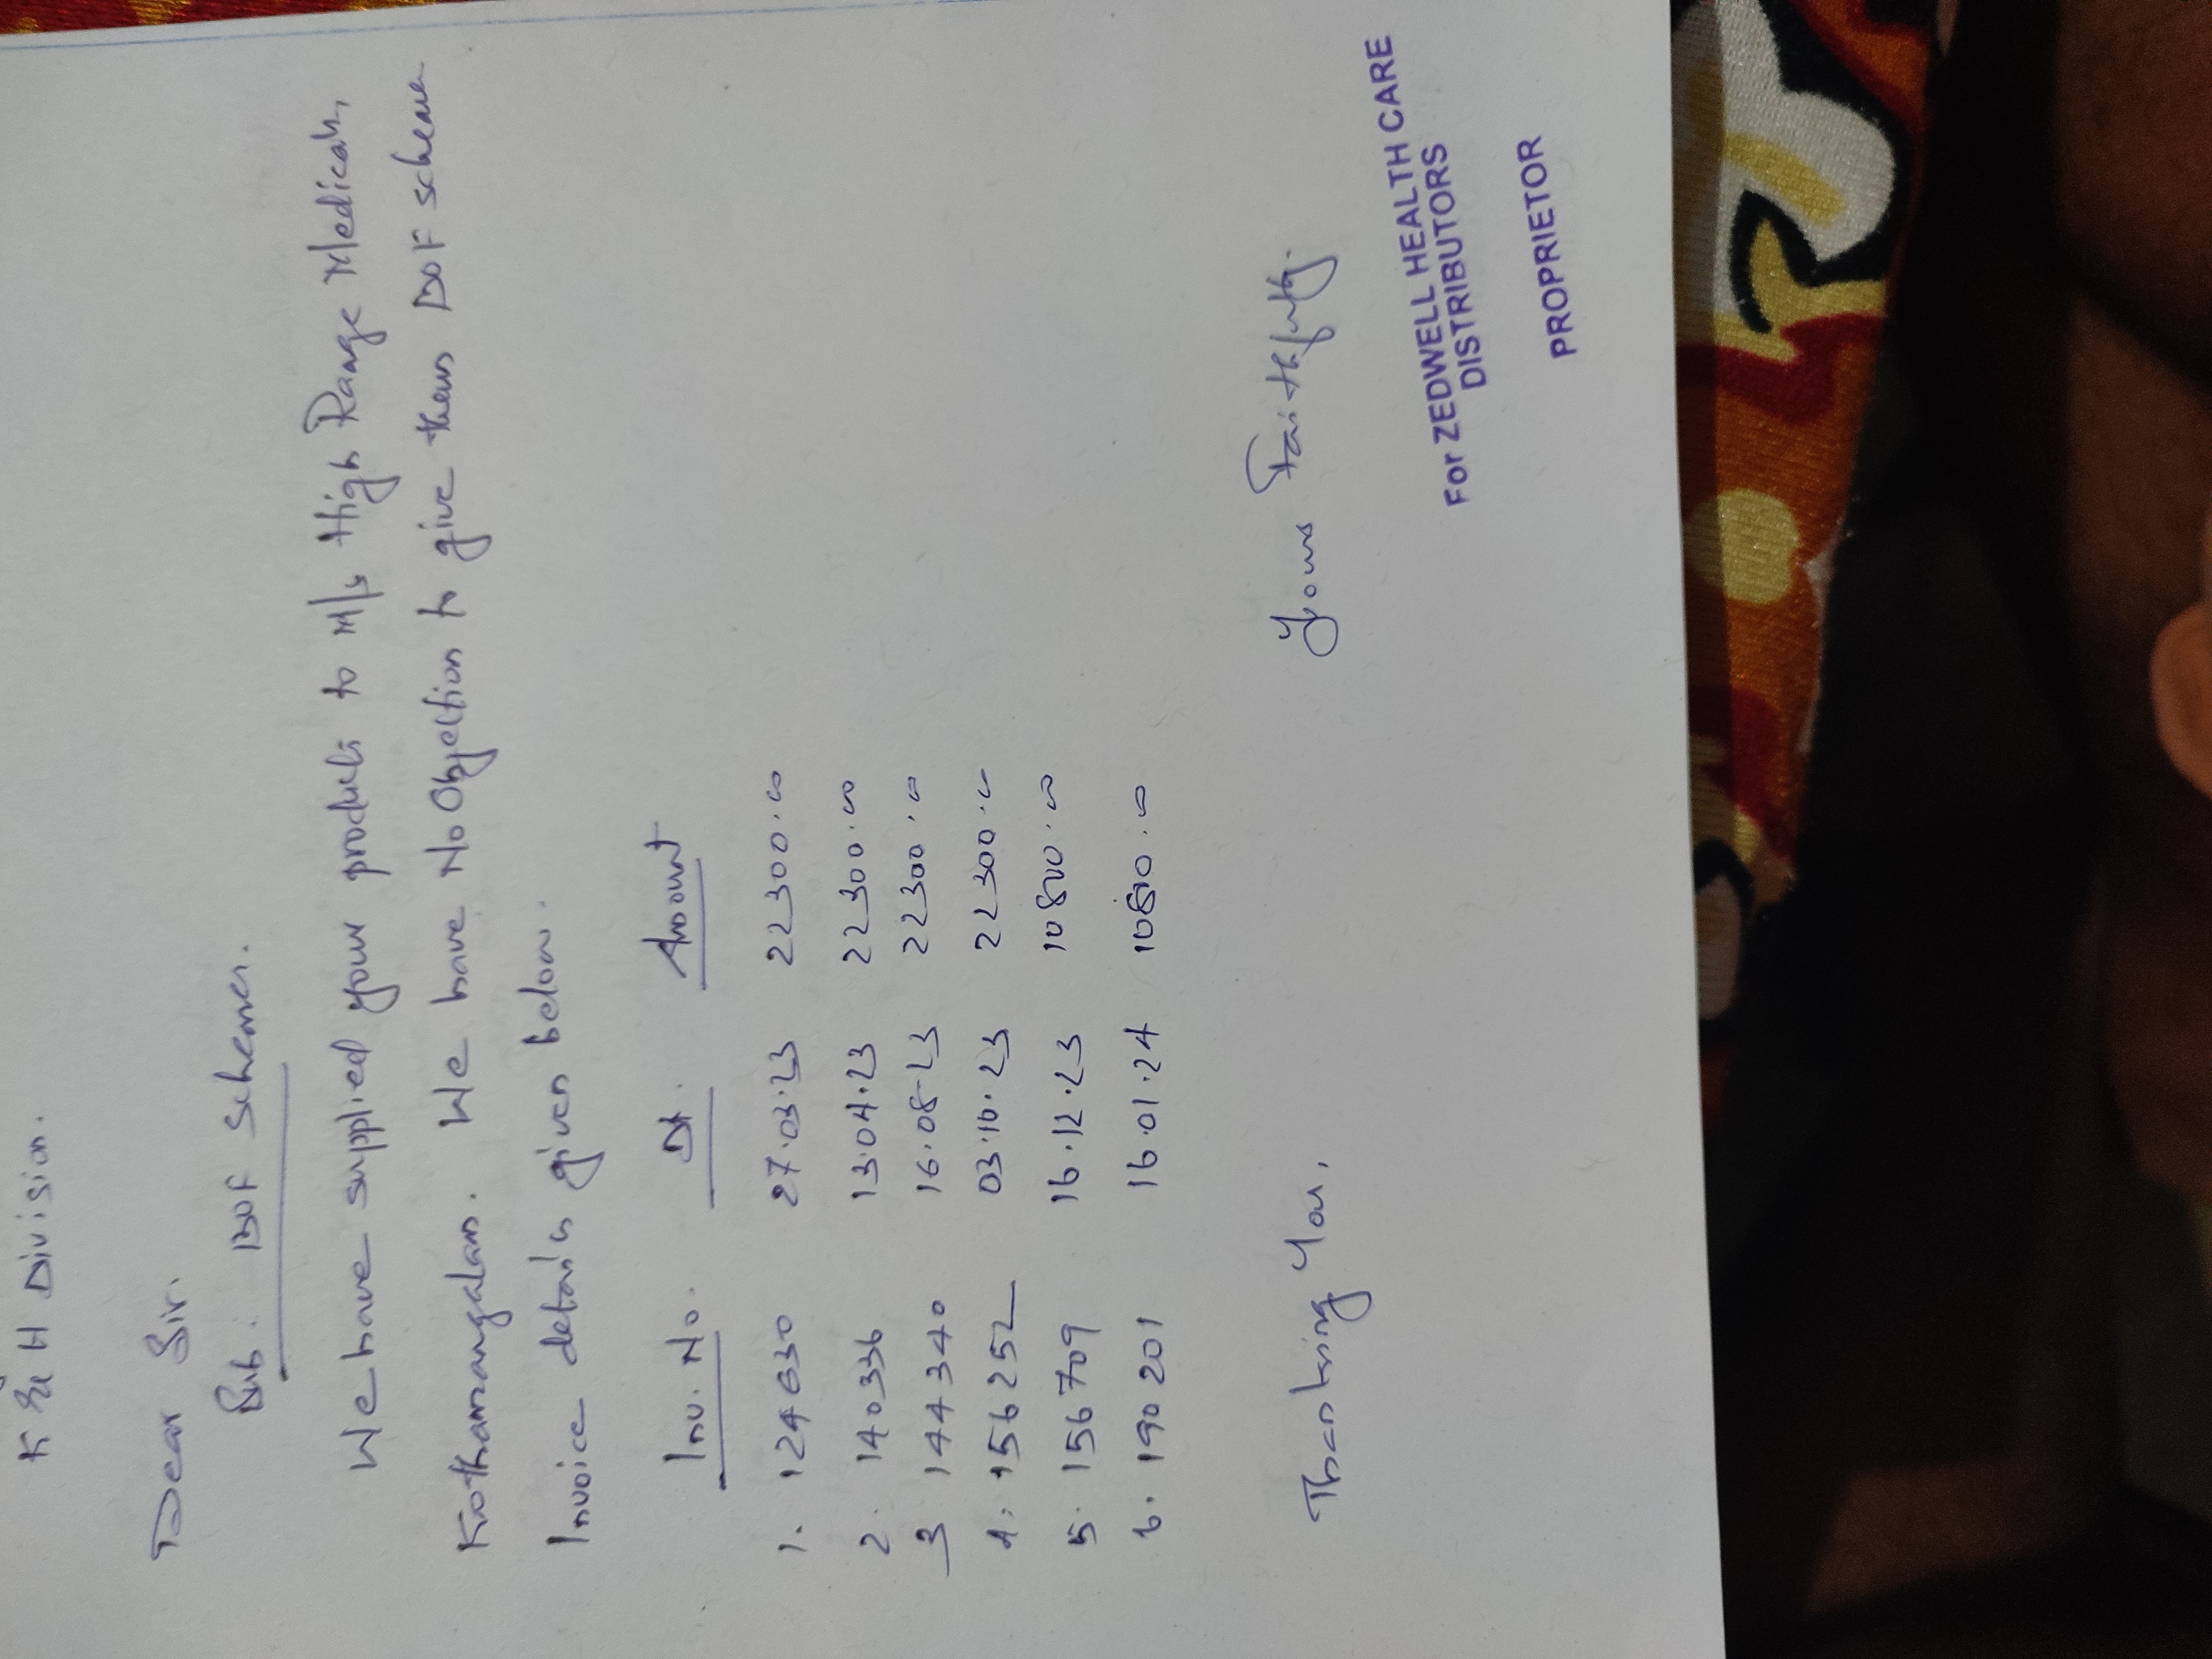 Division.
Dear Sir.
Sub. DOF Schemes.
We have supplied your products to M/s High Range Medicals,
Kothamangalam. We have No Objection to give them DOF scheme
Invoice details given below.
Inv. No. Dt. Amount
1. 124630 27.03.23 22300.00
2. 140336 13.04.23 22300.00
3 144340 16.08.23 22300.00
4. 156252 03.10.23 22300.00
5. 156709 16.12.23 10800.00
6. 190201 16.01.24 10800.00
Thanking You,
Yours Faithfully.
For ZEDWELL HEALTH CARE
DISTRIBUTORS
PROPRIETOR